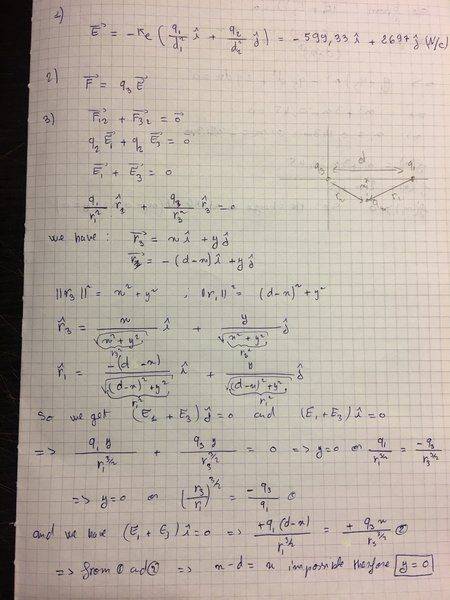 1)
E⃗ = -Ke ( q1/d1² î + q2/d2² ĵ ) = -599,33 î + 2697 ĵ (N/C)
2) F⃗ = q3 E⃗
3) F⃗12 + F⃗32 = 0⃗
q2 E⃗1 + q2 E⃗3 = 0
E⃗1 + E⃗3 = 0
d
q3 q1
x
r1
q1/r1² r̂1 + q3/r3² r̂3 = 0
we have : r⃗3 = x î + y ĵ
= -(d-x) î + y ĵ
||r3||² = x² + y² ; ||r1||² = (d-x)² + y²
r̂3 = x/√(x²+y²) î + y/√(x²+y²) ĵ
r3² r3²
r̂1 = -(d-x)/√((d-x)²+y²) î + y/√((d-x)²+y²) ĵ
r1² r1²
So we get (E⃗1 + E⃗3) ĵ = 0 and (E⃗1 + E⃗3) î = 0
=> q1 y/r1^3/2 + q3 y/r3^3/2 = 0 => y=0 or q1/r1^3/2 = -q3/r3^3/2
=> y=0 or (r3/r1)^3/2 = -q3/q1 ①
and we have (E⃗1 + E⃗3) î = 0 => +q1 (d-x)/r1^3/2 = + q3 x/r3^3/2 ②
=> from ① ad ② => x-d = x impossible therefore y = 0